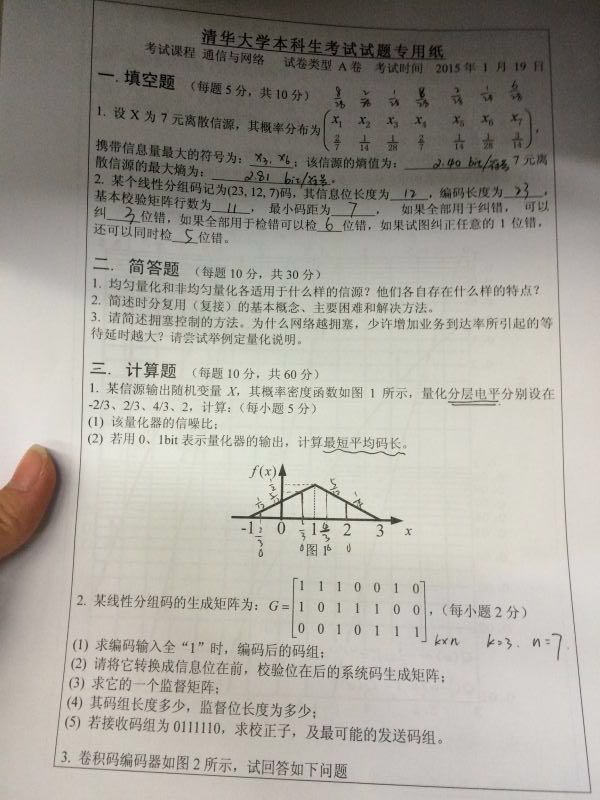 清华大学本科生考试试题专用纸
考试课程 通信与网络 试卷类型 A 卷 考试时间 2015 年 1 月 19 日
一. 填空题 (每题 5 分，共 10 分)
8/28 2/28 1/28 8/28 2/28 1/28 6/28
1. 设 X 为 7 元离散信源，其概率分布为 x₁ x₂ x₃ x₄ x₅ x₆ x₇
2/7 1/14 1/28 2/7 1/14 1/28 3/14 ，
携带信息量最大的符号为：x₃, x₆；该信源的熵值为：2.40 bit/符号 7 元离
散信源的最大熵为：2.81 bit/符号。
2. 某个线性分组码记为(23, 12, 7)码，其信息位长度为 12，编码长度为 23，
基本校验矩阵行数为 11，最小码距为 7，如果全部用于纠错，可以
纠 3 位错，如果全部用于检错可以检 6 位错，如果试图纠正任意的 1 位错，
还可以同时检 5 位错。
二. 简答题 (每题 10 分，共 30 分)
1. 均匀量化和非均匀量化各适用于什么样的信源？他们各自存在什么样的特点？
2. 简述时分复用（复接）的基本概念、主要困难和解决方法。
3. 请简述拥塞控制的方法。为什么网络越拥塞，少许增加业务到达率所引起的等
待延时越大？请尝试举例定量化说明。
三. 计算题 (每题 10 分，共 60 分)
1. 某信源输出随机变量 X，其概率密度函数如图 1 所示，量化分层电平分别设在
-2/3、2/3、4/3、2，计算：（每小题 5 分）
(1) 该量化器的信噪比；
(2) 若用 0、1bit 表示量化器的输出，计算最短平均码长。
f(x)
-1 0 1 4/3 2 3 x
图 1
2. 某线性分组码的生成矩阵为：G =
1 1 1 0 0 1 0
1 0 1 1 1 0 0
0 0 1 0 1 1 1
，（每小题 2 分）
k×n k=3. n=7.
(1) 求编码输入全“1”时，编码后的码组；
(2) 请将它转换成信息位在前，校验位在后的系统码生成矩阵；
(3) 求它的一个监督矩阵；
(4) 其码组长度多少，监督位长度为多少；
(5) 若接收码组为 0111110，求校正子，及最可能的发送码组。
3. 卷积码编码器如图 2 所示，试回答如下问题